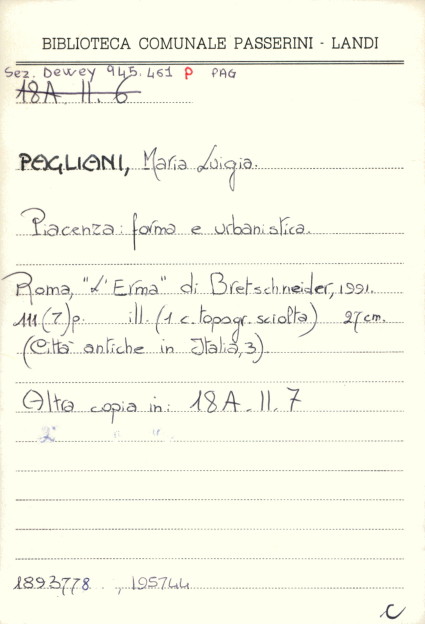 BIBLIOTECA COMUNALE PASSERINI - LANDI
Sez. Dewey 945.461 P PAG
18A. II. 6
PAGLIANI, Maria Luigia.
Piacenza: forma e urbanistica.
Roma, "L'Erma" di Bretschneider, 1991.
111 (7) p. ill. (1 c. topogr. sciolta) 27 cm.
(Città antiche in Italia, 3).
Altra copia in: 18A. II. 7
1893778 , 195744
C